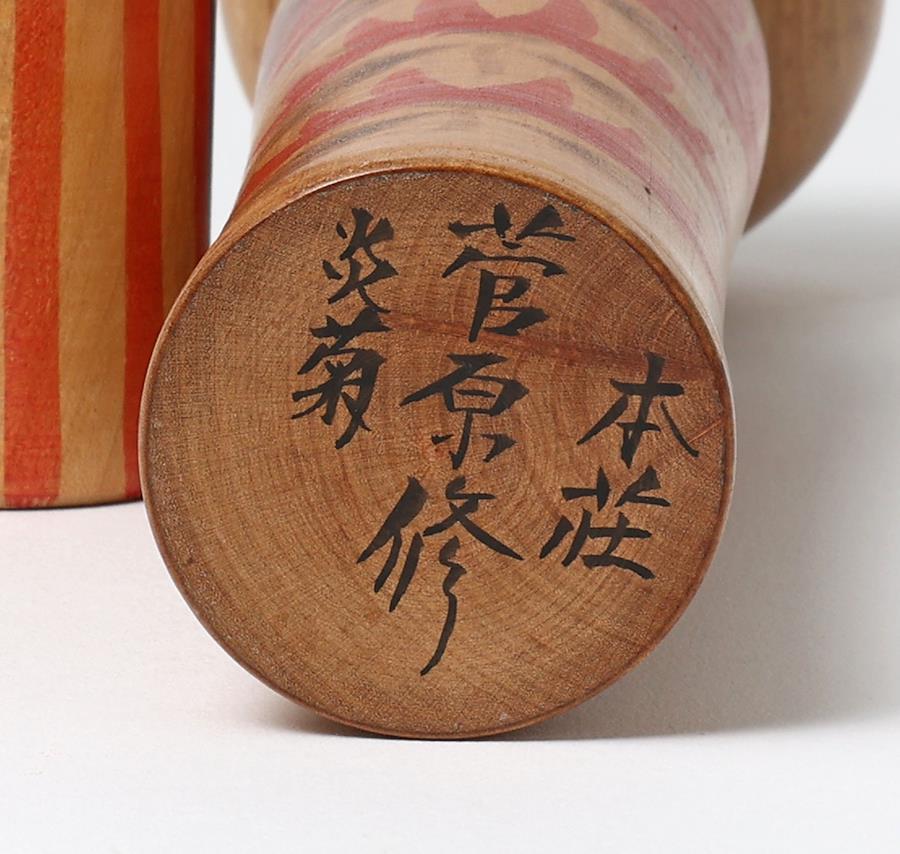 本荘
菅原修
炎菊